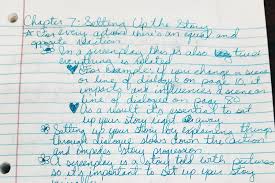 Chapter 7: Setting Up the Story
For every action there's an equal and
opposite reaction
In a screenplay this is also very true
everything is related
For example: if you change a scene
or line of dialogue on page 10, it
impacts & influences a scene or
line of dialogue on page 80
As a result it's essential to set
up your story right away
Setting up your story by explaining things
through dialogue slows down the action
and impedes story progression
A screenplay is a story told with pictures
so it's important to set up your story